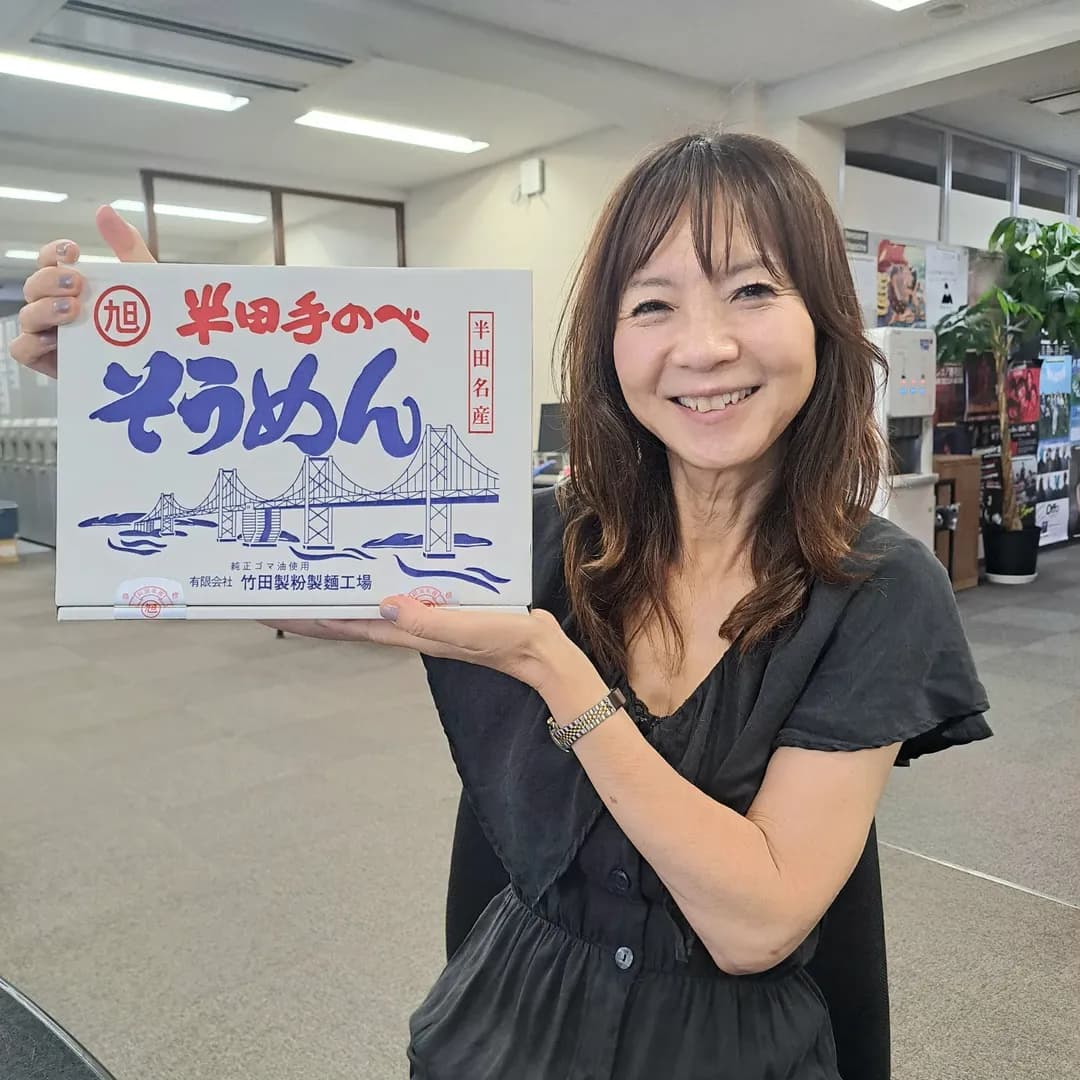 旭
半田手のべ
そうめん
半田名産
純正ゴマ油使用
有限会社 竹田製粉製麺工場
旭